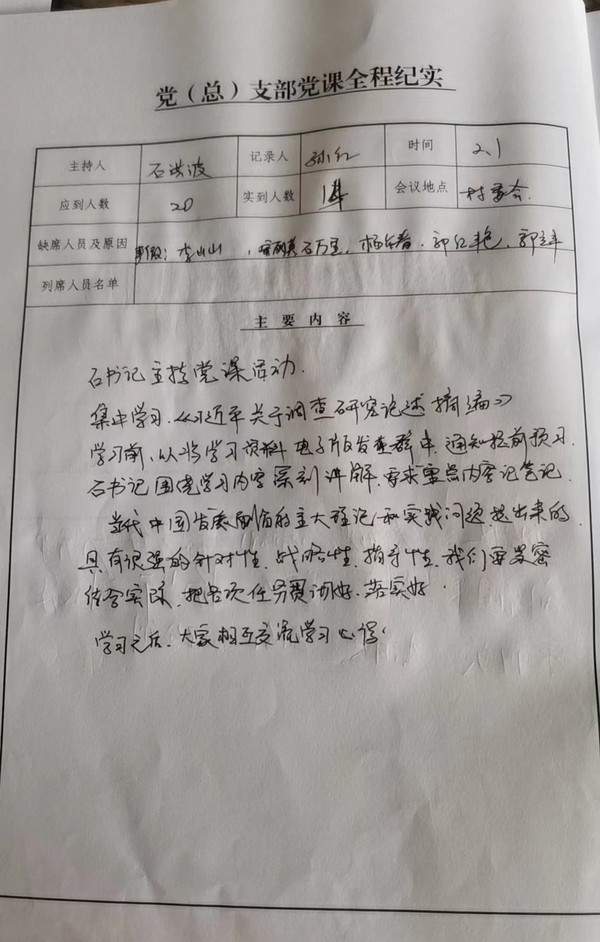 党（总）支部党课全程纪实
主持人 石洪波 记录人 孙红 时间 2.1
应到人数 20 实到人数 会议地点 村委会.
缺席人员及原因 事假：李山山，石万里，郭红艳，郭
列席人员名单
主要内容
石书记主持党课活动.
集中学习.《习近平关于调查研究论述摘编》
学习前、以将学习资料电子版发至群中，通知提前预习.
石书记围绕学习内容深刻讲解，要求重点内容记笔记.
当代中国发展面临的重大理论和实践问题提出来的
具有很强的针对性、战略性、指导性，我们要紧密
结合实际，把各次任务贯彻好、落实好.
学习之后，大家相互交流学习心得.